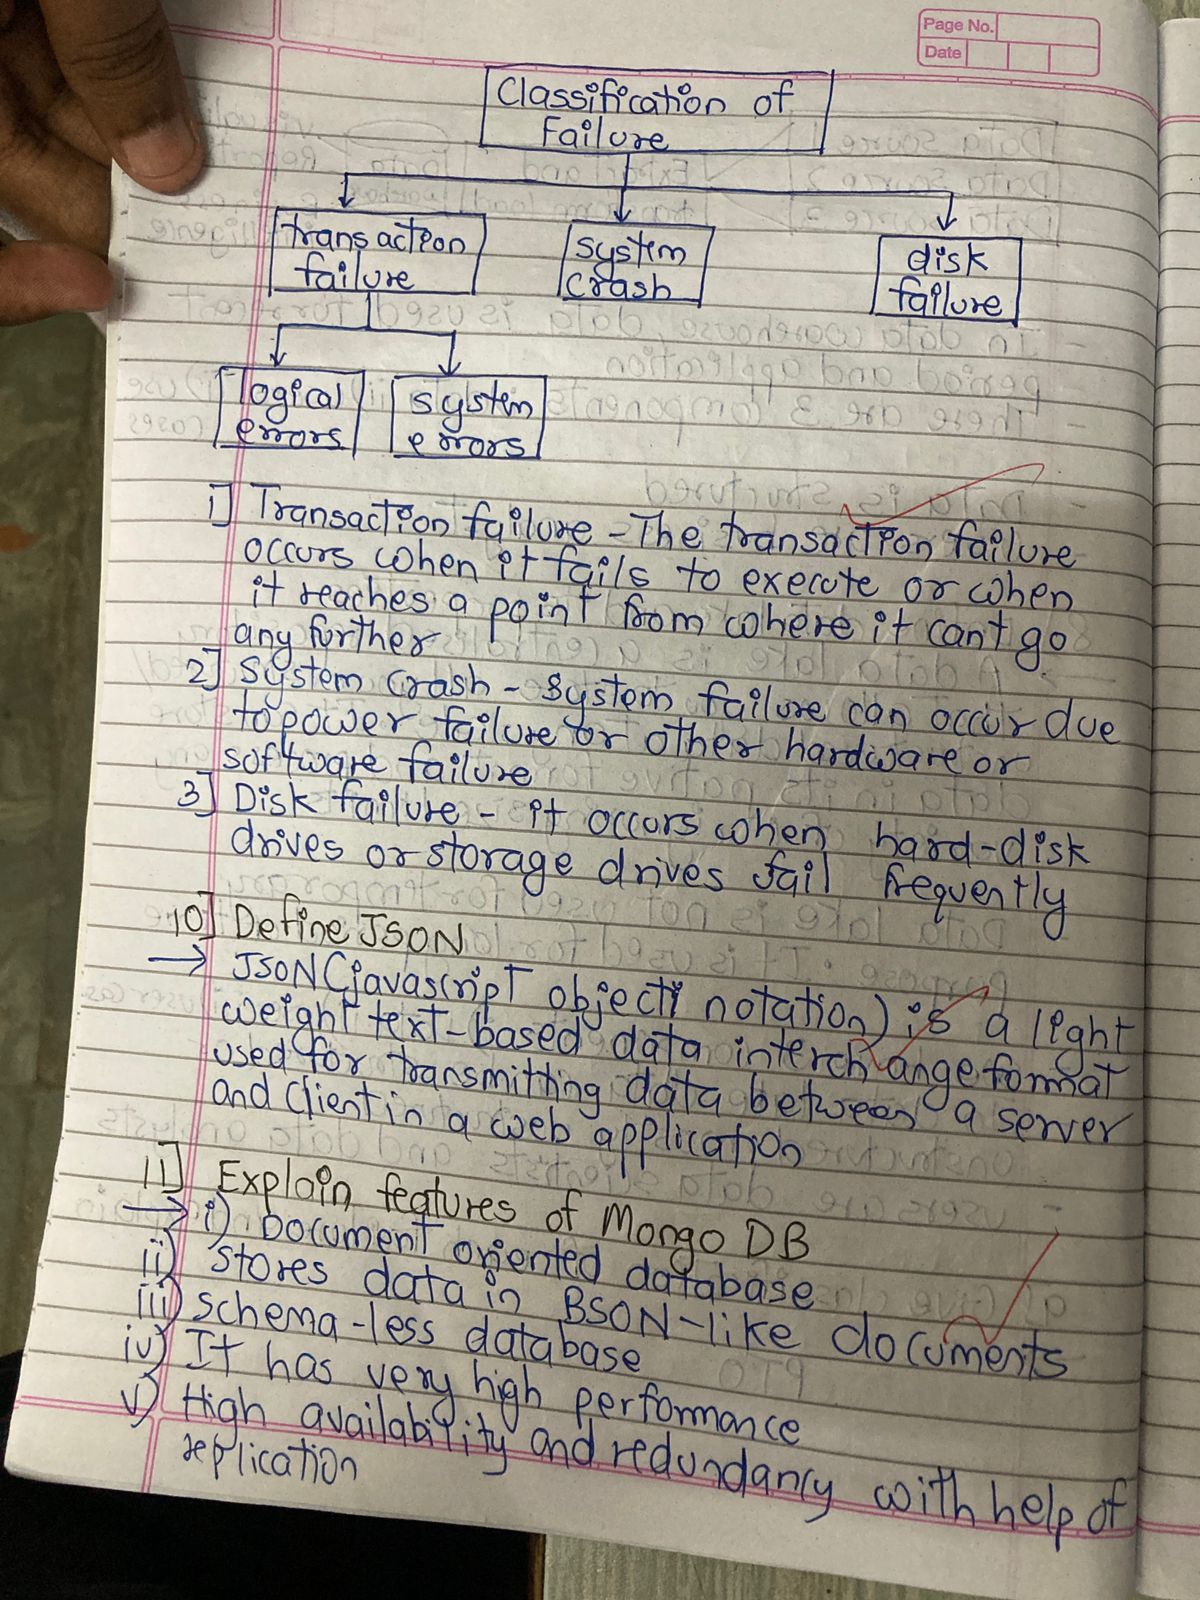 Page No.
Date
Classification of
Failure
transaction
failure
system
crash
disk
failure
logical
errors
system
errors
1] Transaction failure - The transaction failure
occurs when it fails to execute or when
it reaches a point from where it can't go
any further
2] System crash - System failure can occur due
to power failure or other hardware or
software failure
3] Disk failure - it occurs when hard-disk
drives or storage drives fail frequently
10] Define JSON
→ JSON (javascript object notation) is a light
weight text-based data interchange format
used for transmitting data between a server
and client in a web application
11] Explain features of Mongo DB
→ i) Document oriented database
ii) stores data in BSON-like documents
iii) schema-less database
iv) It has very high performance
v) High availability and redundancy with help of
replication